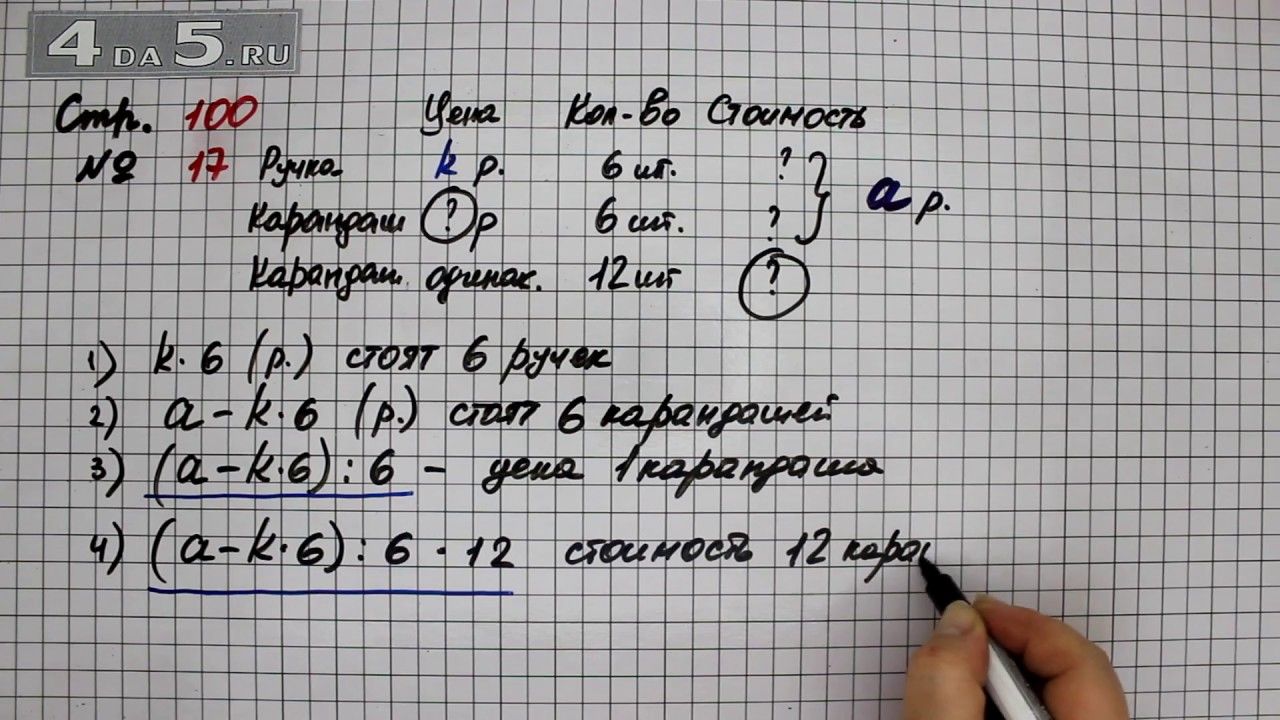 4 DA 5.RU
Стр. 100 Цена Кол-во Стоимость
№ 17 Ручка k р. 6 шт. ?
Карандаш ? р 6 шт. ? } a р.
Карандаш. одинак. 12 шт ?
1) k · 6 (р.) стоят 6 ручек
2) a - k · 6 (р.) стоят 6 карандашей
3) (a - k · 6) : 6 - цена 1 карандаша
4) (a - k · 6) : 6 · 12 стоимость 12 каран